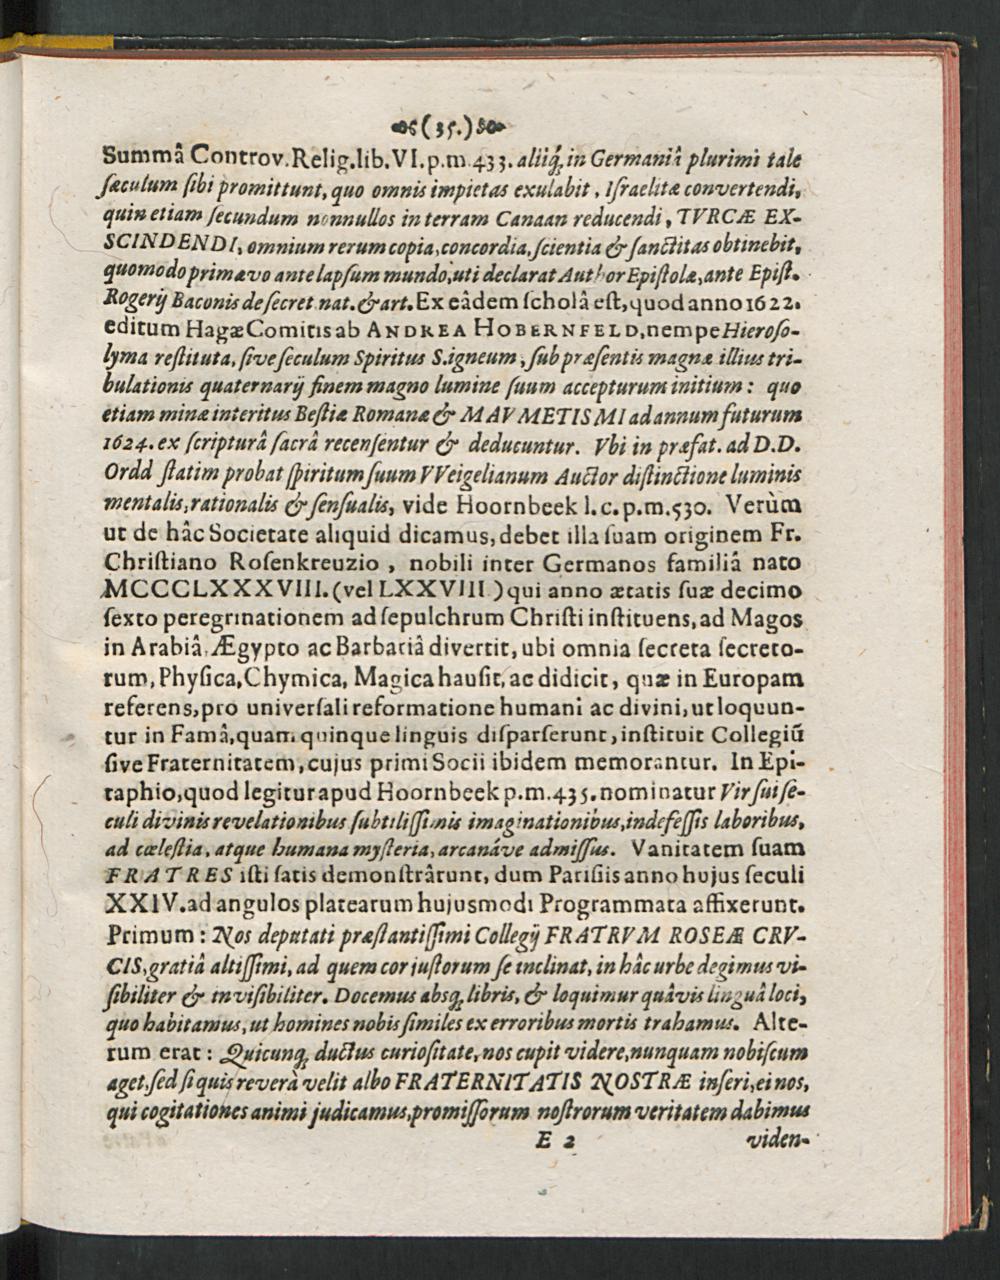 (35.)
Summâ Controv. Relig. lib. VI. p. m. 433. aliiq́, in Germaniâ plurimi tale
ſæculum ſibi promittunt, quo omnis impietas exulabit, Iſraelitæ convertendi,
quin etiam ſecundum nonnullos in terram Canaan reducendi, TVRCÆ EX-
SCINDENDI, omnium rerum copia, concordia, ſcientia & ſanctitas obtinebit,
quomodo primævo ante lapſum mundo, uti declarat Author Epiſtolæ, ante Epiſt.
Rogerij Baconis de ſecret. nat. & art. Ex eâdem ſcholâ eſt, quod anno 1622.
editum Hagæ Comitis ab ANDREA HOBERNFELD, nempe Hieroſo-
lyma reſtituta, ſive ſeculum Spiritus S. igneum, ſub præſentis magnæ illius tri-
bulationis quaternarij finem magno lumine ſuum accepturum initium: quo
etiam minæ interitus Beſtiæ Romanæ & MAVMETISMI ad annum futurum
1624. ex ſcripturâ ſacrâ recenſentur & deducuntur. Vbi in præfat. ad D.D.
Ordd ſtatim probat ſpiritum ſuum VVeigelianum Auctor diſtinctione luminis
mentalis, rationalis & ſenſualis, vide Hoornbeek l. c. p. m. 530. Verùm
ut de hâc Societate aliquid dicamus, debet illa ſuam originem Fr.
Chriſtiano Roſenkreuzio, nobili inter Germanos familiâ nato
MCCCLXXXVIII. (vel LXXVIII.) qui anno ætatis ſuæ decimo
ſexto peregrinationem ad ſepulchrum Chriſti inſtituens, ad Magos
in Arabiâ, Ægypto ac Barbariâ divertit, ubi omnia ſecreta ſecreto-
rum, Phyſica, Chymica, Magica hauſit, ac didicit, quæ in Europam
referens, pro univerſali reformatione humani ac divini, ut loquun-
tur in Famâ, quam quinque linguis diſparſerunt, inſtituit Collegiū
ſive Fraternitatem, cujus primi Socii ibidem memorantur. In Epi-
taphio, quod legitur apud Hoornbeek p. m. 435. nominatur Vir ſui ſe-
culi divinis revelationibus ſubtiliſſimis imaginationibus, indefeſſis laboribus,
ad cœleſtia, atque humana myſteria, arcanáve admiſſus. Vanitatem ſuam
FRATRES iſti ſatis demonſtrârunt, dum Pariſiis anno hujus ſeculi
XXIV. ad angulos platearum hujusmodi Programmata affixerunt.
Primum: Nos deputati præſtantiſſimi Collegij FRATRVM ROSEÆ CRV-
CIS, gratiâ altiſſimi, ad quem cor juſtorum ſe inclinat, in hâc urbe degimus vi-
ſibiliter & inviſibiliter. Docemus absq, libris, & loquimur quâvis linguâ loci,
quo habitamus, ut homines nobis ſimiles ex erroribus mortis trahamus. Alte-
rum erat: Quicunq, ductus curioſitate, nos cupit videre, nunquam nobiſcum
aget, ſed ſi quis reverà velit albo FRATERNITATIS NOSTRÆ inſeri, ei nos,
qui cogitationes animi judicamus, promiſſorum noſtrorum veritatem dabimus
E 2 viden-